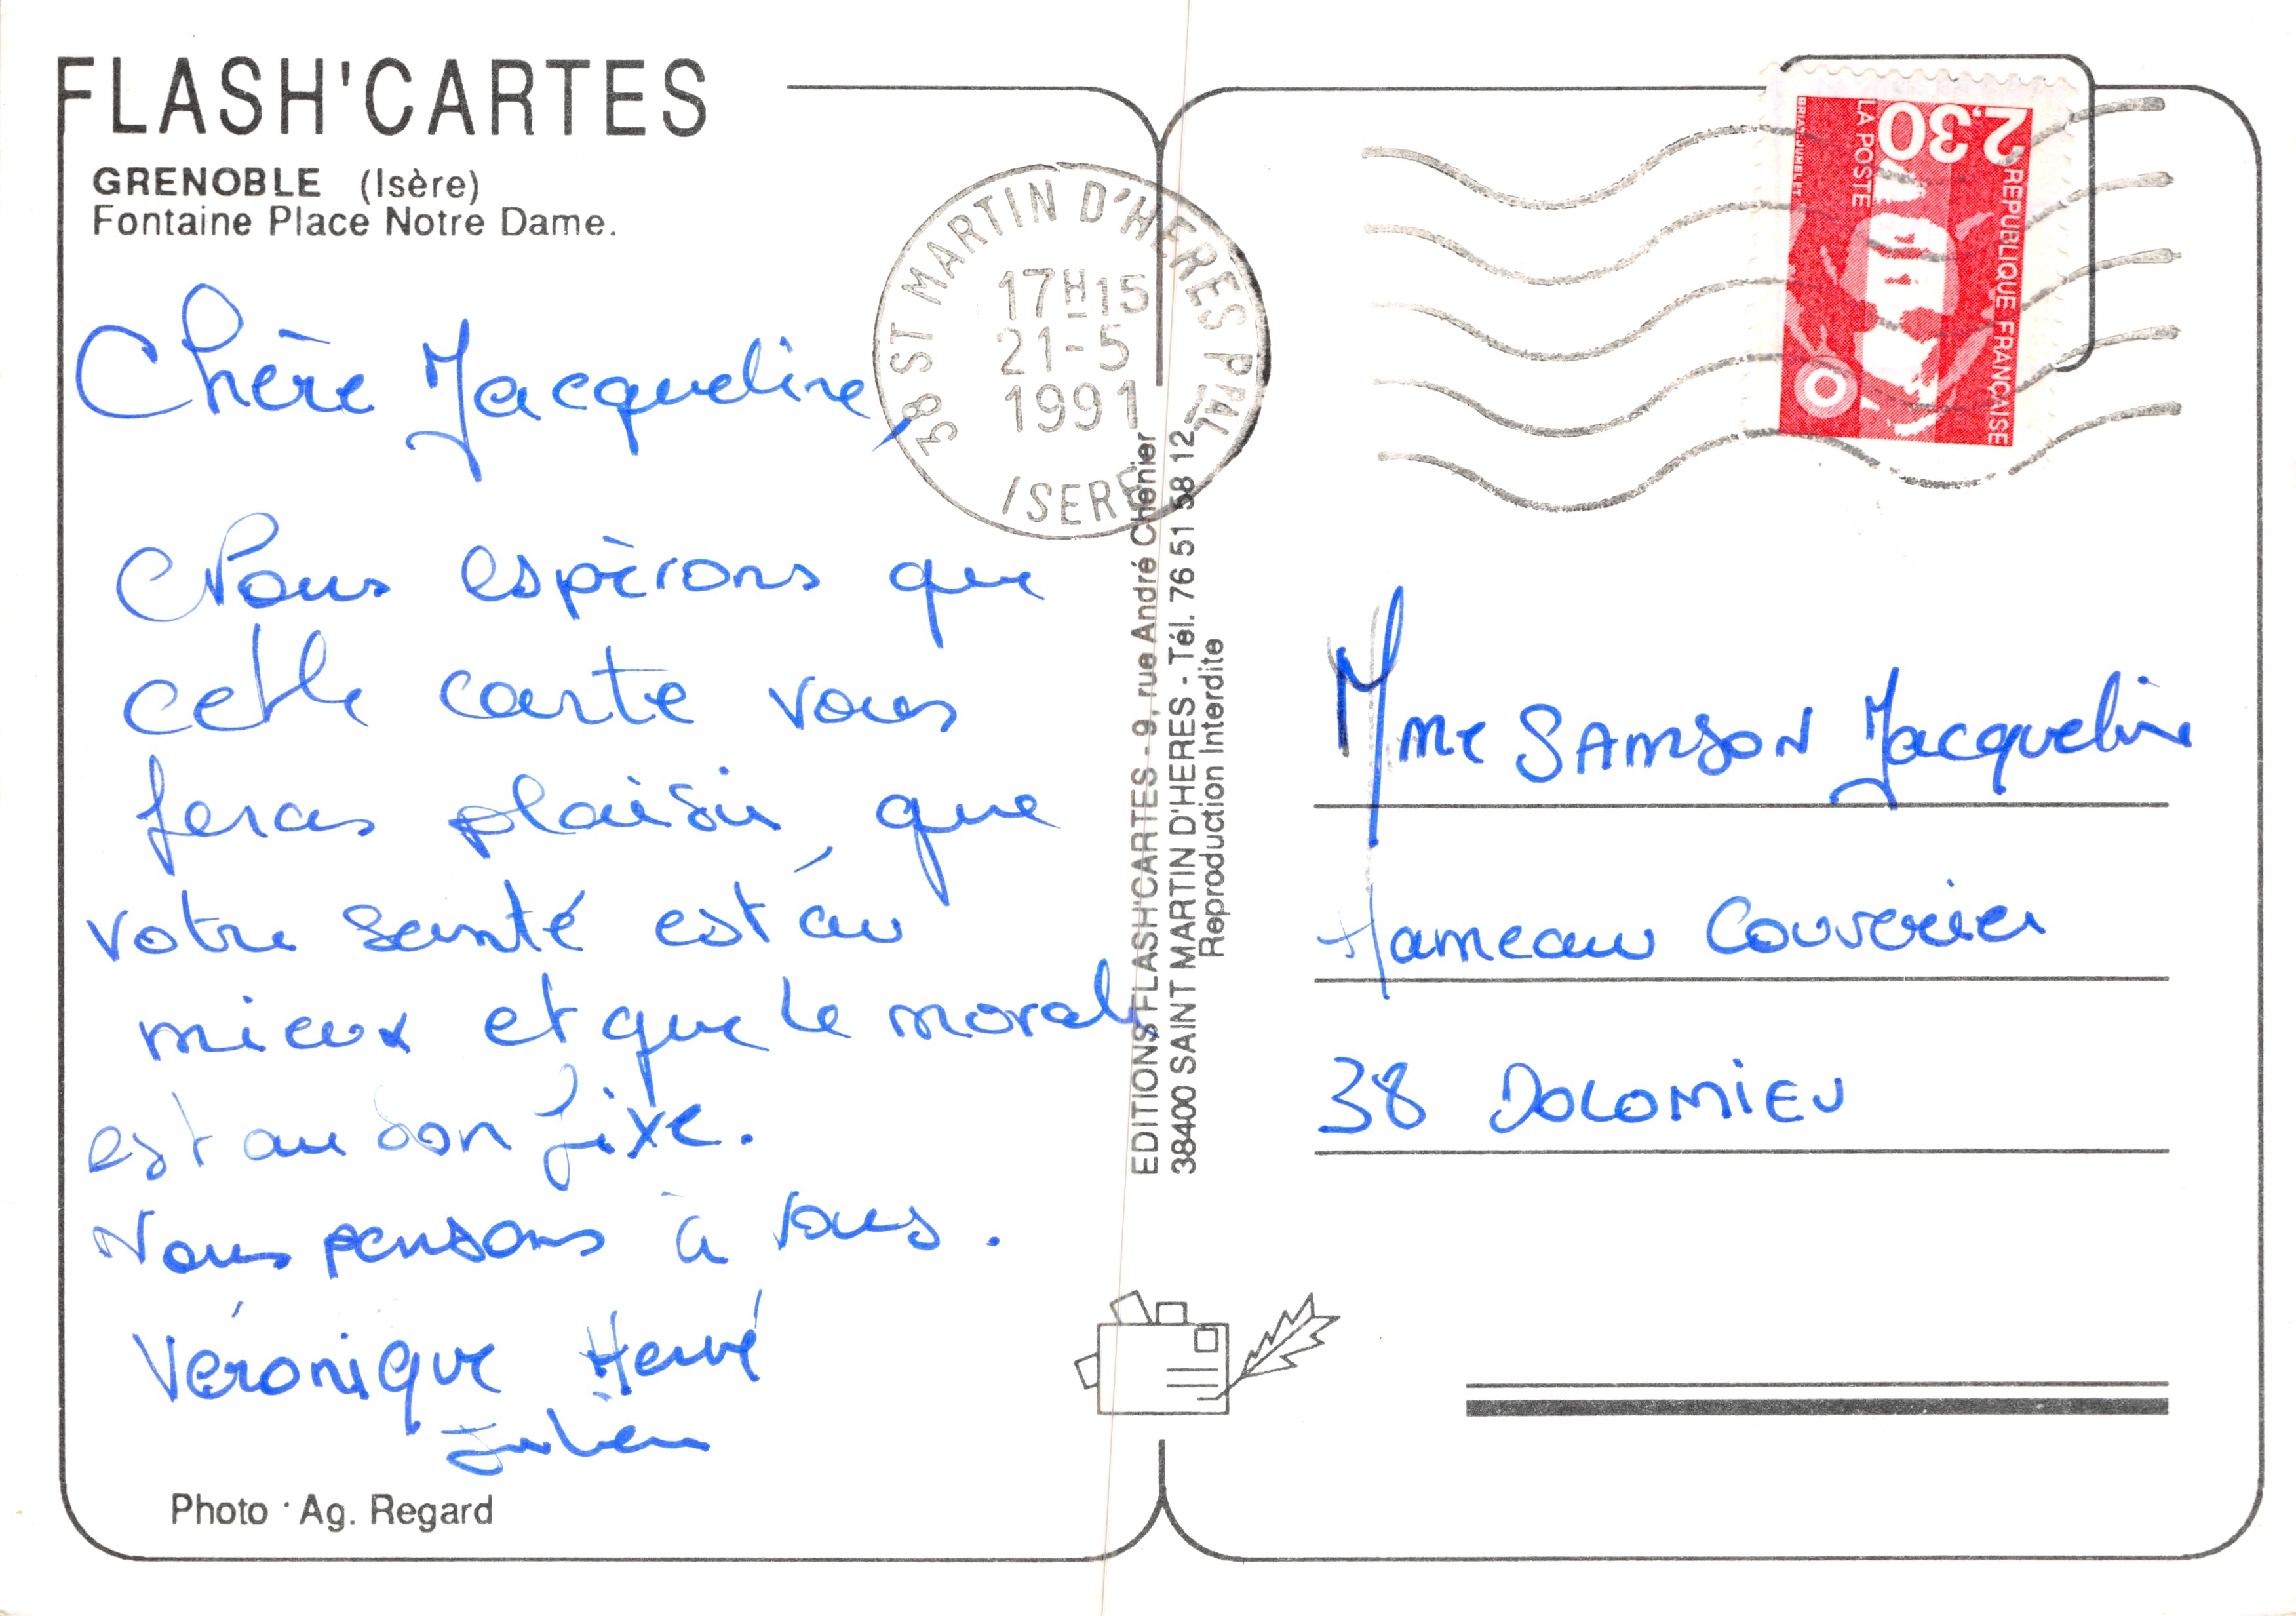 FLASH'CARTES
GRENOBLE (Isère)
Fontaine Place Notre Dame.
Chère Jacqueline,
Nous espèrons que
cette carte vous
feras plaisir, que
votre santé est au
mieux et que le moral
est au bon fixe.
Nous pensons à vous.
Véronique Hervé
Julien
Photo · Ag. Regard
38 ST MARTIN D'HERES PPAL
17H15
21-5
1991
ISERE
EDITIONS FLASH'CARTES - 9, rue André Chénier
38400 SAINT MARTIN D'HERES - Tél. 76 51 58 12
Reproduction Interdite
2,30
LA POSTE
REPUBLIQUE FRANÇAISE
BRIAT-JUMELET
Mme SAMSON Jacqueline
Hameau
38 DOLOMIEU